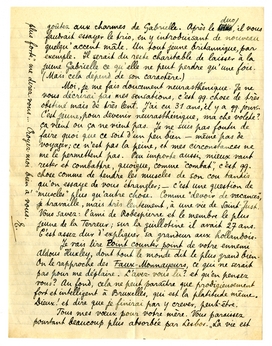 goûter aux charmes de Gabrielle. Après le duo, il vous
faudrait essayer le trio, en y introduisant de nouveau
quelqu'accent mâle. Un tout jeune britannique, par
exemple. Il serait du reste charitable de laisser à la
jeune Gabrielle ce qu'elle ne peut perdre qu'une fois.
(Mais cela dépend de son caractère)
Moi, je me fais doucement neurasthénique. Je ne
vous décrirai pas mes sensations, c'est qq. chose de très
obstiné mais de très lent. J'ai eu 31 ans, et il y a
C'est jeune, pour devenir neurasthénique, ma che volete?
ça vient ou ça ne vient pas. Je ne suis pas foutu de
faire quoi que ce soit d'un peu bien — même pas de
voyager, ce n'est pas la peine, et mes circonstances ne
me le permettent pas. Peu importe aussi, mieux vaut
rester et combattre, quoique, comme combat, c'est qq.
chose comme de tendre les muscles de son cou tandis
qu'on essaye de vous étrangler; — c'est une question de
muscles plus qu'autre chose. Comme devoir de vacances,
je travaille, mais très lentement, à une vie de Saint Just.
Vous savez: l'ami de Robespierre et le membre le plus
jeune de la Terreur; sur la guillotine il avait 27 ans.
C'est assez dur d'expliquer sa grandeur aux hollandais.
Je vais lire Point counter point de votre ennemi
Aldous Huxley, dont tout le monde dit le plus grand bien.
On le rapproche des Faux-Monnayeurs, ce qui ne serait
pas pour me déplaire. L'avez-vous lu? et qu'en pensez
vous? Au fond, cela ne peut paraître que prodigieusement
fort et intelligent à Bruxelles, qui est la platitude même.
Dieux! et dire que je finirai par y crever, peut-être.
Tous mes vœux pour votre mère. Vous paraissez
pourtant beaucoup plus absorbée par Lesbos. La vie est
plus forte, me direz-vous. Bien à vous.